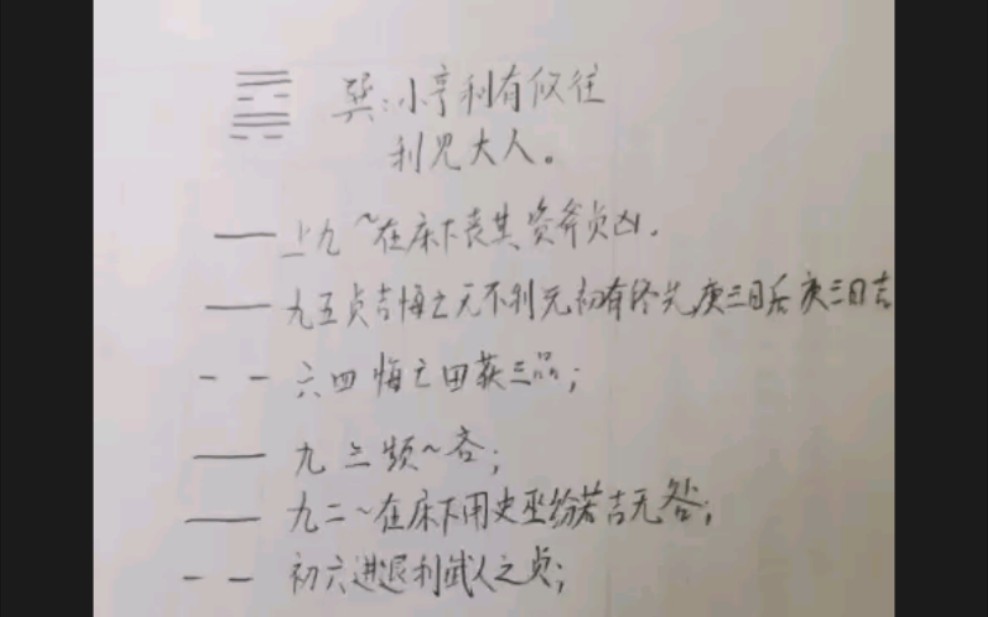 巽:小亨利有攸往
利见大人。
上九~在床下丧其资斧贞凶.
九五贞吉悔亡无不利无初有终先庚三日后庚三日吉
六四悔亡田获三品;
九三频~吝;
九二~在床下用史巫纷若吉无咎;
初六进退利武人之贞;